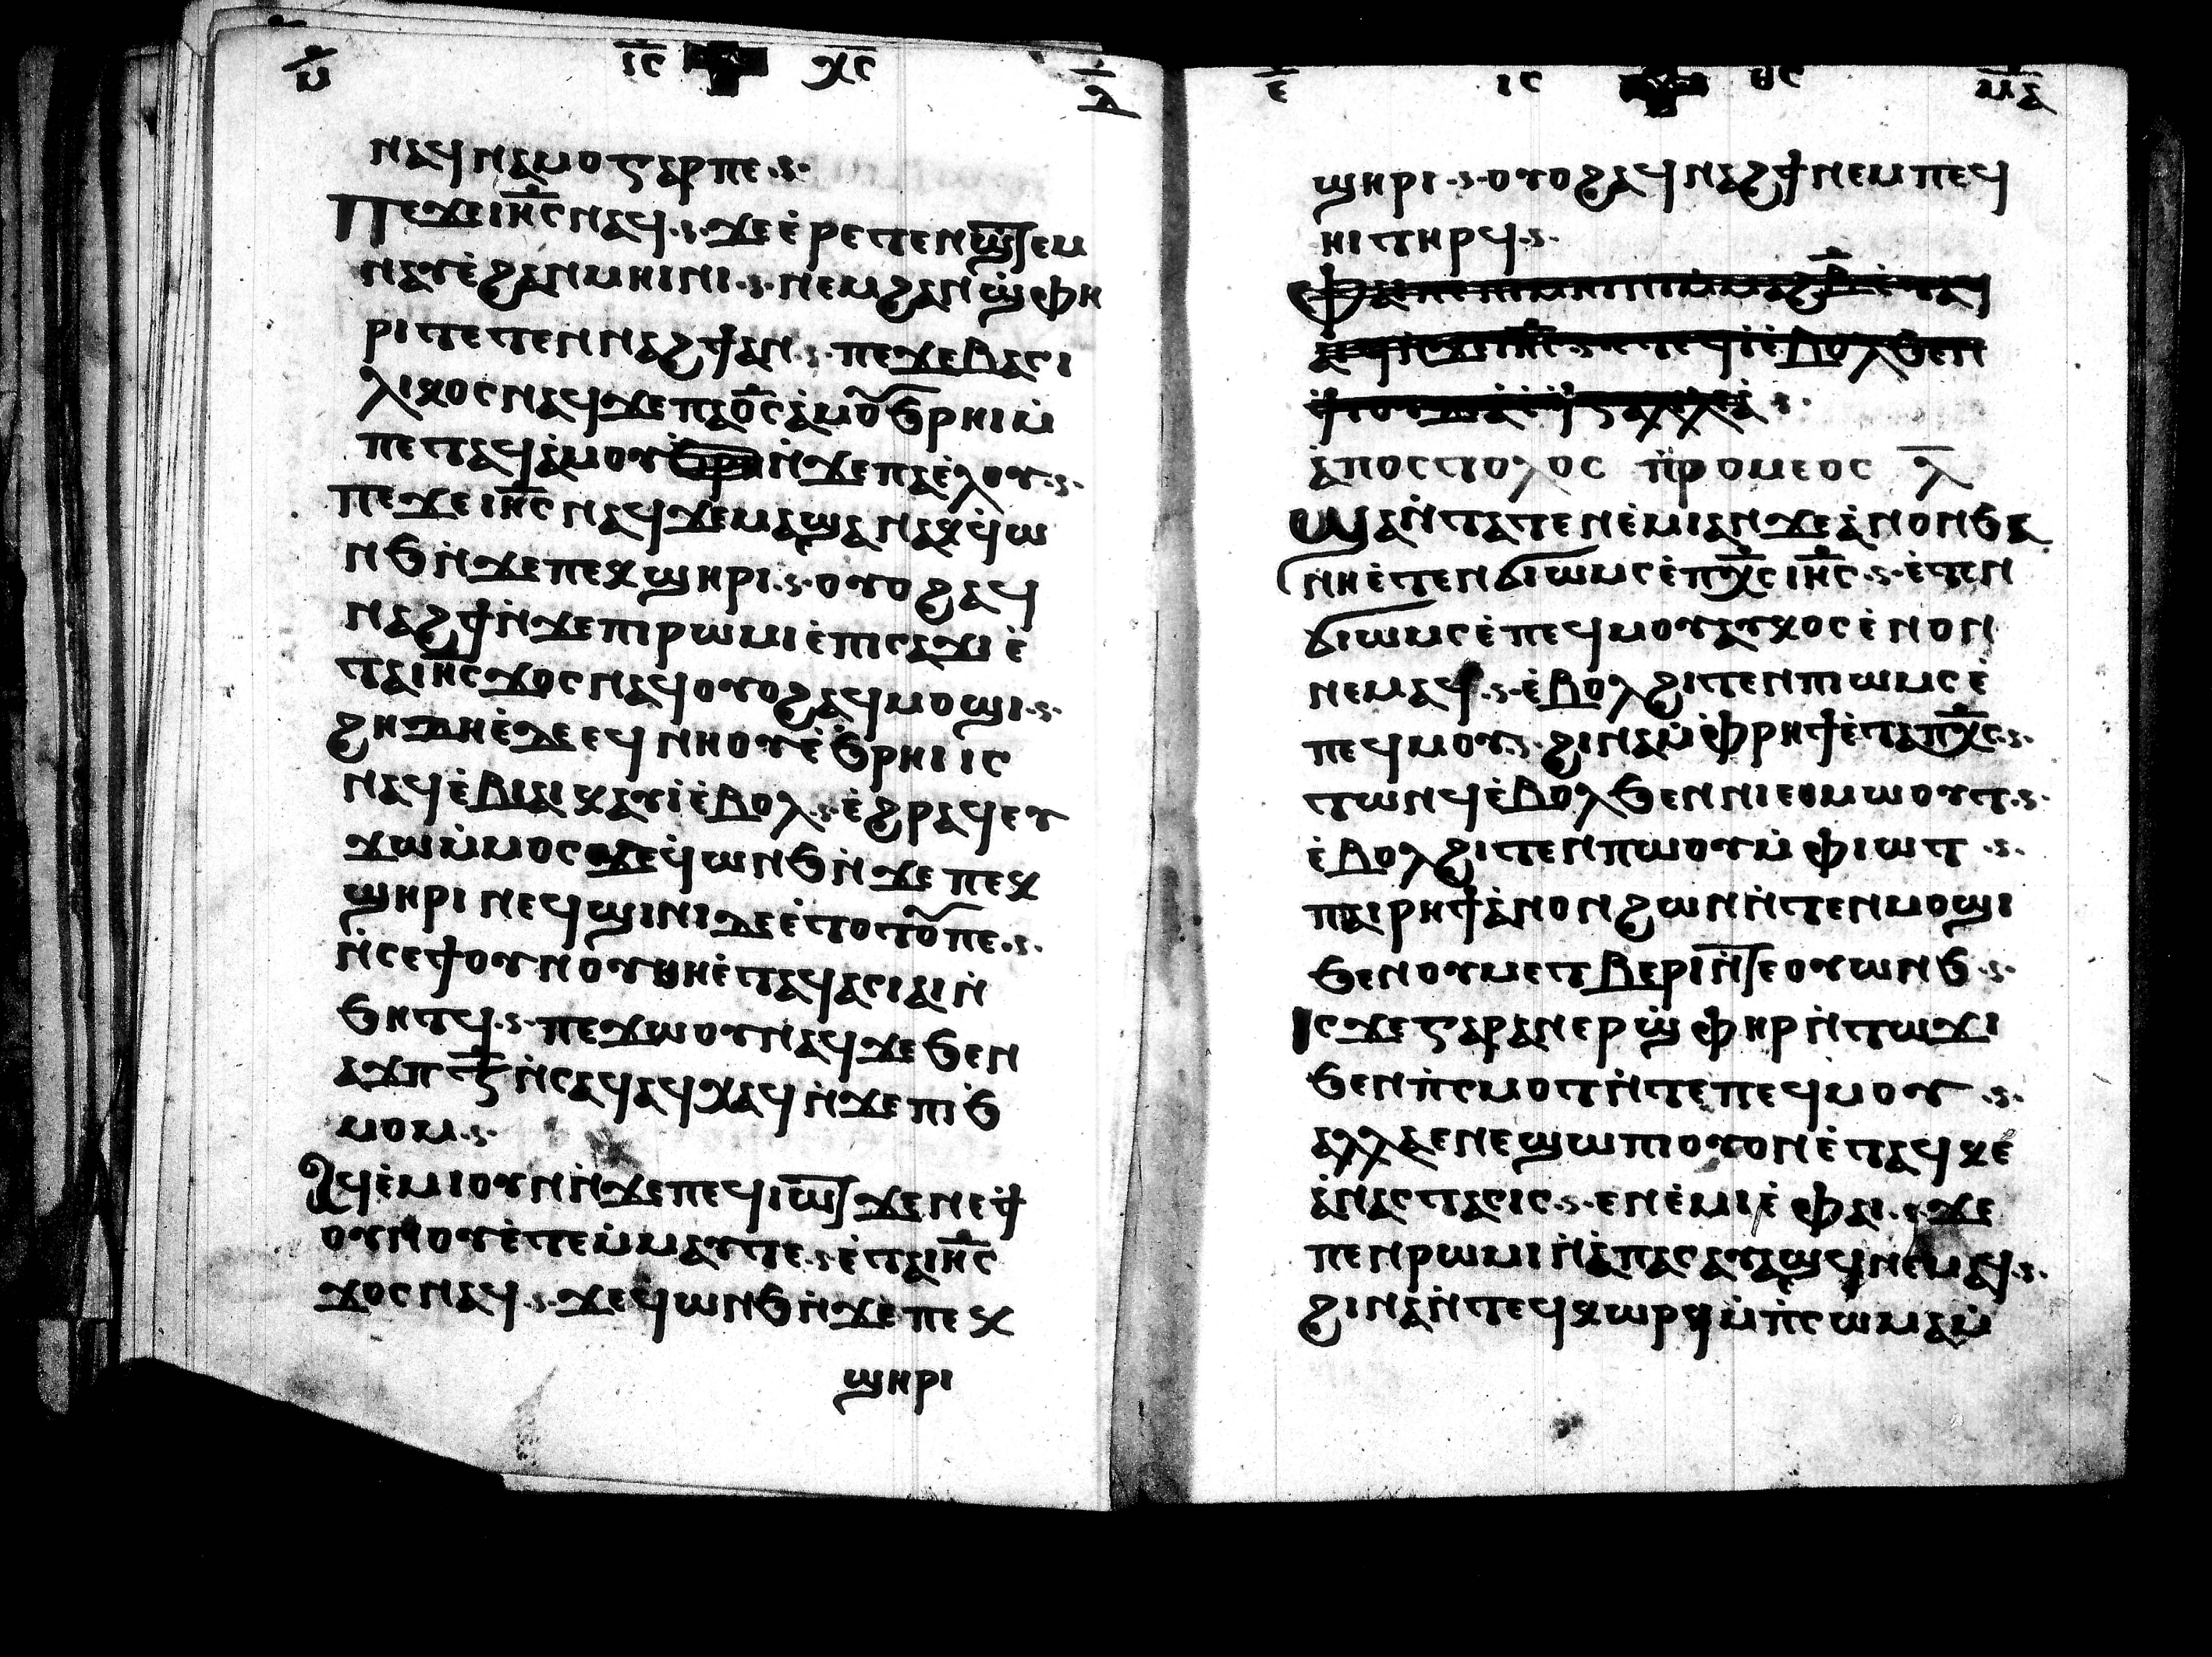 ⲙ̄ ⲓ̅ⲥ̅ ⲭ̅ⲥ̅ ⲗ̄
ⲛⲁϥⲛⲁⲙⲟⲩⲅⲁⲣⲡⲉ·ⲋ·
Ⲡⲉϫⲉⲓⲏ̅ⲥ̅ⲛⲁϥ·ⲋ·ϫⲉⲉ̀ⲣⲉⲧⲉⲛϣ̅ⲧⲉⲙ
ⲛⲁⲩⲉ̀ϩⲁⲛⲙⲏⲓⲛⲓ·ⲋ·ⲛⲉⲙϩⲁⲛϣ̀ⲫⲏ
ⲣⲓⲧⲉⲧⲉⲛⲛⲁϩϯⲁⲛ·ⲋ·ⲡⲉϫⲉⲃⲁⲥⲓ
ⲗⲓⲕⲟⲥⲛⲁϥϫⲉⲡⲁⲟ̅ⲥ̅ⲁ̀ⲙⲟ̅ϧⲣⲏⲓⲙ̀
ⲡⲉⲧⲁϥⲁ̀ⲙⲟⲩϧⲣⲛ̀ϫⲉⲡⲁⲉ̀ⲗⲟⲩ·ⲋ·
ⲡⲉϫⲉⲓⲏ̅ⲥ̅ⲛⲁϥϫⲉⲙⲁϣⲁⲛⲁⲕϥ̀ⲱ
ⲛϧⲛ̀ϫⲉⲡⲉⲕϣⲏⲣⲓ·ⲋ·ⲟⲩⲟϩⲁϥ
ⲛⲁϩϯⲛ̀ϫⲉⲡⲓⲣⲱⲙⲓⲉ̀ⲡⲓⲥⲁϫⲓⲉ̀
ⲧⲁⲓⲏ̅ⲥ̅ϫⲟⲥⲛⲁϥⲟⲩⲟϩⲁϥⲙⲟϣⲓ·ⲋ·
ϩⲏⲇⲏⲉ̀ⲇⲉⲉϥⲛⲏⲟⲩⲉ̀ϧⲣⲏⲓⲓⲥ
ⲛⲁϥⲉ̀ⲃⲓⲁⲓⲕⲁⲩⲓ̀ⲉ̀ⲃⲟⲗ·ⲋ·ⲉ̀ϩⲣⲁϥⲉⲩ
ϫⲱⲙ̀ⲙⲟⲥϫⲉϥ̀ⲱⲛϧⲛ̀ϫⲉⲡⲉⲕ
ϣⲏⲣⲓⲛⲉϥϣⲓⲛⲓⲇⲉⲉ̀ⲧⲟⲧⲟ̅ⲡⲉ·ⲋ·
ⲛ̀ⲥⲉϯⲟⲩⲛⲟⲩⲏⲛⲉ̀ⲧⲁϥⲁⲥⲓⲁⲓⲛ̀
ϧⲏⲧϥ·ⲋ·ⲡⲉϫⲱⲟⲩⲛⲁϥϫⲉϧⲉⲛ
ⲁϫⲡⲍ̅ⲛ̀ⲥⲁϥⲁϥⲭⲁϥⲛ̀ϫⲉⲡⲓϧ̀
ⲙⲟⲙ·ⲋ·
Ⲁϥⲉ̀ⲙⲓⲟⲩⲛⲛ̀ϫⲉⲡⲉϥⲓⲱ̅ⲧϫⲉⲛⲉϯ̀
ⲟⲩⲛⲟⲩⲉ̀ⲧⲉⲙ̀ⲙⲁⲩⲧⲉ·ⲋ·ⲉ̀ⲧⲁⲓⲏ̅ⲥ̅
ϫⲟⲥⲛⲁϥ·ⲋ·ϫⲉϥⲱⲛϧⲛ̀ϫⲉⲡⲉⲕ
ϣⲏⲣⲓ
ⲉ̄ ⲓⲥ ⲑⲥ ⲙ̅ⲁ̅
ϣⲏⲣⲓ·ⲋ·ⲟⲩⲟϩⲁϥⲛⲁϩϯⲛⲉⲙⲡⲉϥ
ⲏⲓⲧⲏⲣϥ·ⲋ·
ⲁ̀ⲡⲟⲥⲧⲟⲗⲟⲥ ⲡ̀ⲣⲟⲙⲉⲟⲥ ⲗ̄
Ϣⲁⲛ̀ⲧⲁⲧⲉⲛⲉ̀ⲙⲓⲁⲛϫⲉⲁ̀ⲛⲟⲛϧⲁ
ⲛⲏⲉ̀ⲧⲉⲛϭⲓⲱⲙⲥⲉ̀ⲡⲭ̅ⲥ̅ⲓⲏ̅ⲥ̅·ⲋ·ⲉ̀ⲧⲉⲛ
ϭⲓⲱⲙⲥⲉ̀ⲡⲉϥⲙⲟⲩⲁⲩⲕⲟⲥⲉ̀ⲛⲟⲛ
ⲛⲉⲙⲁϥ·ⲋ·ⲉ̀ⲃⲟⲗϩⲓⲧⲉⲛⲡⲓⲱⲙⲥⲉ̀
ⲡⲉϥⲙⲟⲩ·ⲋ·ϩⲓⲛⲁⲙ̀ⲉ̀ⲫⲣⲏϯⲉ̀ⲧⲁⲡⲭ̅ⲥ̅·ⲋ·
ⲧⲱⲛϥⲉ̀ⲃⲟⲗϧⲉⲛⲛⲓⲉⲑⲙⲱⲟⲩⲧ·ⲋ·
ⲉ̀ⲃⲟⲗϩⲓⲧⲉⲛⲡⲱⲟⲩⲙ̀ⲫⲓⲱⲧ·ⲋ·
ⲡⲁⲓⲣⲏϯⲁ̀ⲛⲟⲛϩⲱⲛⲛ̀ⲧⲉⲛⲙⲟϣⲓ
ϧⲉⲛⲟⲩⲙⲉⲧⲃⲉⲣⲓⲛ̅ⲧⲉⲟⲩⲱⲛϧ·ⲋ·
Ⲓⲥϫⲉⲅⲁⲣⲁⲛⲉⲣϣ̀ⲫⲏⲣⲛ̀ⲧⲱϫⲓ
ϧⲉⲛⲡ̀ⲥⲙⲟⲧⲛ̀ⲧⲉⲡⲉϥⲙⲟⲩ·ⲋ·
ⲁⲗⲗⲁⲉⲛⲉϣⲱⲡⲓⲟⲩⲟⲛⲉ̀ⲧⲁϥⲕⲉ̀
ⲁ̀ⲛⲁⲥⲧⲁⲥⲓⲥ·ⲋ·ⲉⲛⲉ̀ⲙⲓⲉ̀ⲫⲁⲓ·ⲋ·ϫⲉ
ⲡⲉⲛⲣⲱⲙⲓⲛ̀ⲁ̀ⲡⲁⲥⲁⲩⲁϣϥⲛⲉⲙⲁϥ·ⲋ·
ϩⲓⲛⲁⲛ̀ⲧⲉϥⲕⲱⲣϥⲙ̀ⲡ̀ⲥⲱⲙⲁⲙ̀